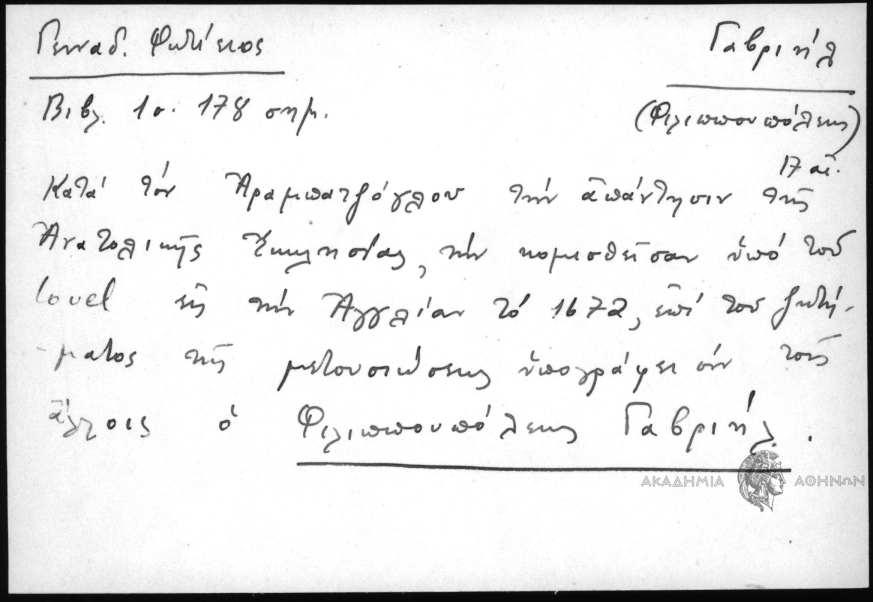 Γενναδ. Φωτίειος
Γαβριήλ
Βιβλ. 1σ. 178 σημ.
(Φιλιππουπόλεως)
17 αἰ.
Κατά τόν Ἀραμπατζόγλου τήν ἀπάντησιν τῆς
Ἀνατολικῆς Ἐκκλησίας, τήν κομισθεῖσαν ὑπό τοῦ
Covel εἰς τήν Ἀγγλίαν τό 1672, ἐπί τοῦ ζητή-
-ματος τῆς μετουσιώσεως ὑπογράφει σύν τοῖς
ἄλλοις ὁ Φιλιππουπόλεως Γαβριήλ.
ΑΚΑΔΗΜΙΑ ΑΘΗΝΩΝ